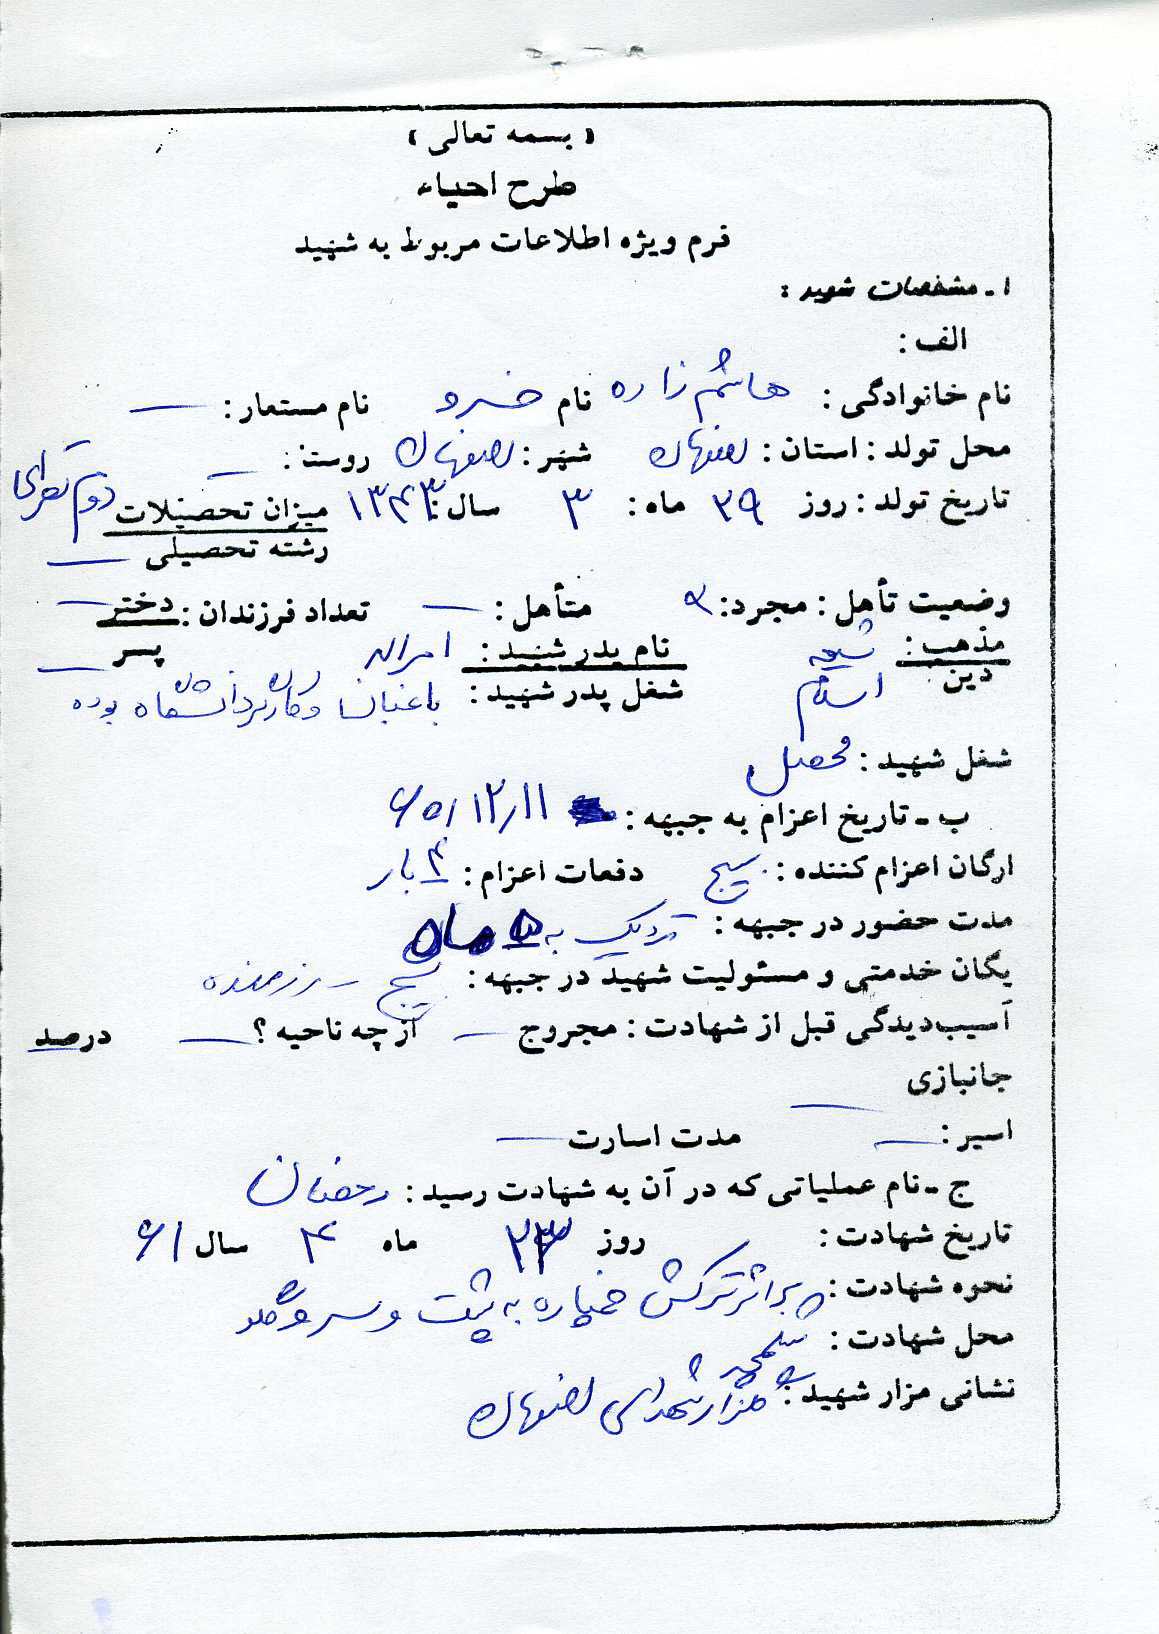 « بسمه تعالی »
طرح احیاء
فرم ویژه اطلاعات مربوط به شهید
۱ـ مشخصات شهید :
الف :
نام خانوادگی : هاشم زاده نام خسرو نام مستعار : —
محل تولد : استان : اصفهان شهر : اصفهان روستا : —
تاریخ تولد : روز ۲۹ ماه : ۳ سال : ۱۳۴۳ میزان تحصیلات دوم
رشته تحصیلی —
وضعیت تأهل : مجرد : متأهل : — تعداد فرزندان : دختر —
مذهب : شیعه نام پدر شهید : امراله پسر —
دین اسلام شغل پدر شهید : باغبان و کارگر دانشگاه بوده
شغل شهید : محصل
ب ـ تاریخ اعزام به جبهه : ۶۵/۱۲/۱۱
ارگان اعزام کننده : بسیج دفعات اعزام : ۴ بار
مدت حضور در جبهه : نزدیک به ۵ ماه
یگان خدمتی و مسئولیت شهید در جبهه : بسیج – رزمنده
آسیب‌دیدگی قبل از شهادت : مجروح — از چه ناحیه ؟ — درصد
جانبازی —
اسیر : — مدت اسارت —
ج ـ نام عملیاتی که در آن به شهادت رسید : رمضان
تاریخ شهادت : روز ۲۳ ماه ۴ سال ۶۱
نحوه شهادت : بر اثر ترکش خمپاره به پشت و سر و
محل شهادت : شلمچه
نشانی مزار شهید : گلزار شهدای اصفهان